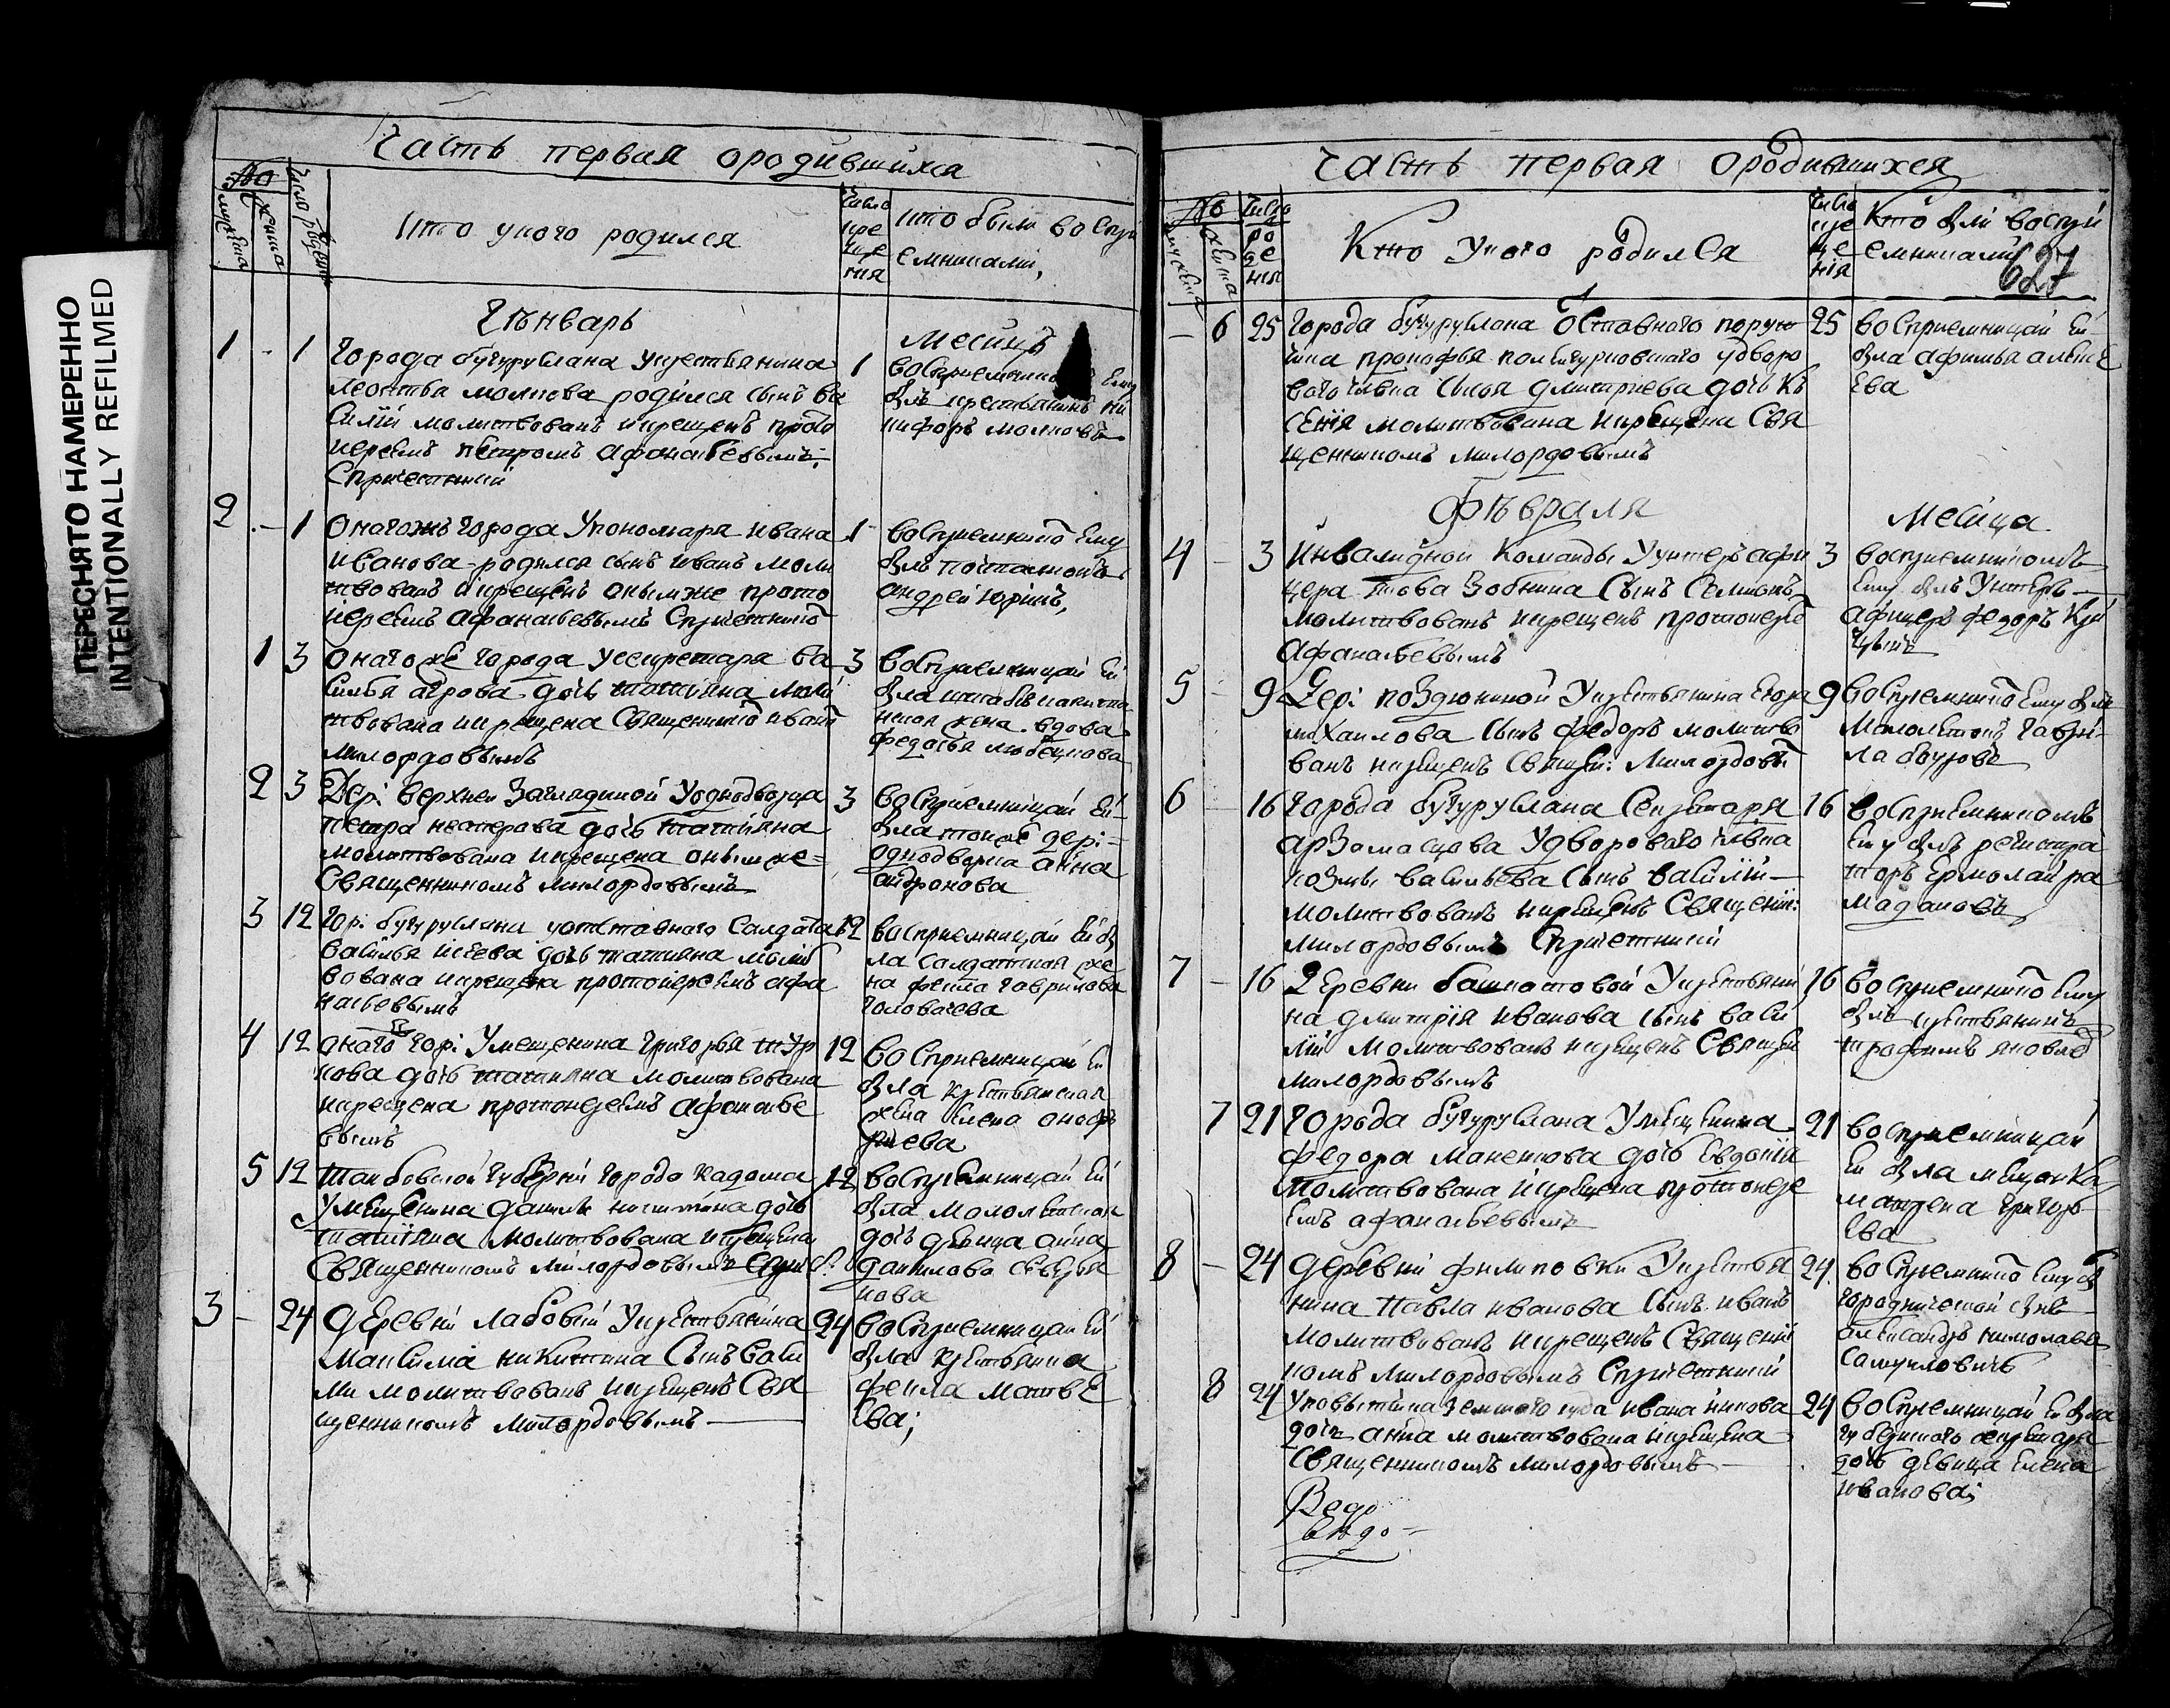 ПЕРЕСНЯТО НАМЕРЕННО
INTENTIONALLY REFILMED
Часть первая ородившихся
№
число рождения
Кто укого родился
число
кре
ще
ния
кто были воспри
емниками,
Генварь
Месица
1 - 1 города бугуруслана укрестьянина 1
леонтья молкова родился сынъ ва
силий молитвованъ икрещенъ прото
иереемъ петромъ афанасьевымъ
Спричетники
восприемнико ему
былъ крестьянинъ ни
кифоръ молковъ
2 - 1 Оногожъ города Упономаря ивана 1
иванова родился сынъ иванъ моли
твованъ икрещенъ онымже прото
иереемъ афанасьевымъ Спричетнико
восприемнико ему
былъ
андрей юринъ,
1 3 Оногоже города усекретаря ва 3
силья дочь татияна моли
твована икрещена Священнико
милордовымъ
восприемницай ей
была
жена вдова
федосья
2 3 Дерi верхнеи Заглядиной Уоднодворца 3
петра дочь татияна
молитвована икрещена онымже=
Священникомъ милордовымъ
восприемницай ей
была тоиже дерi=
однодворка анна
андронова
3 12 горi бугуруслана уотставного Салдата 12
василья исаева дочь татияна молит
вована икрещена протоиреемъ афа
насьевымъ
восприемницай ей бы
ла салдатская же
на фекла гаврилова
головачева
4 12 оного горi Умещенина григорья тур 12
кова дочь татияна молитвована
икрещена протоиереемъ афанасье
вымъ
восприемницай ей
была крестьянская
жена елена оноф
риева
5 12 танбовской губернiи города кадома 12
Умещенина данилы никитина дочь
татияна молитвована икрещена
Священникомъ милордовымъ
восприемницай ей
была
дочь девица анна
данилова
нова
3 - 24 деревни лабовки Укрестьянина 24
Максима никитина Сынъ васи
ли молитвованъ икрещенъ Свя
щенникомъ милордовымъ
восприемницаи ей
была крестьянка
фекла матвѣ
ева;
часть первая ородившихся
№
число
ро
де
ния
Кто Укого родился
число
кре
ще
нiя
Кто были воспри
емниками
627
- 6 25 города бугуруслана Отставного порут 25
чика прокофья удворо
вого члвка сысоя дмитриева дочь К
сения молитвована икрещена Свя
щенникомъ милордовымъ
восприемницай ей
была афимья алексѣ
ева
февраля
месица
4 - 3 Инвалидной команды Уунтеръ афи 3
цера Зобнина Сынъ Семионъ
молитвованъ икрещенъ протоиере
Афанасьевымъ
восприемникомъ
ему былъ Унтеръ
афицеръ федоръ
5 - 9 Дерi поздюниной Укрестьянина егора 9
михаилова Сынъ федоръ молитво
ванъ икрещенъ Священ: милордовы
восприемнико ему былъ
гаври
ла
6 - 16 города бугуруслана Секретаря 16
арзамасцова Удворового члвка
козмы васильева Сынъ василий
молитвованъ икрещенъ Священни:
милордовымъ Спричетники
восприемникомъ
ему былъ регистра
торъ ермолай ра
мадановъ
7 - 16 деревни башкотовой Укрестьяни 16
на дмитрiя иванова сынъ васи
лiй молитвованъ икрещенъ Священ
милордовымъ
восприемнико ему
былъ крестьянинъ
трафимъ яковле
7 21 города бугуруслана Умещенина 21
федора дочь евдокия
молитвована икрещена протоиере
емъ афанасьевымъ
восприемницай
ей была мещанка
матрена григорь
ева
8 - 24 деревни филиповки Укрестья 24
нина павла иванова сынъ иванъ
молитвованъ икрещенъ Священни
комъ милордовымъ Спричетники
восприемнико ему бы
городнической сынъ
александръ николаевъ
самуиловичь
8 24 Уповытчика земского суда ивана 24
дочь анна молитвована икрещена
Священникомъ милордовымъ
восприемницай ей была
губернского секретаря
дочь девица елена
иванова;